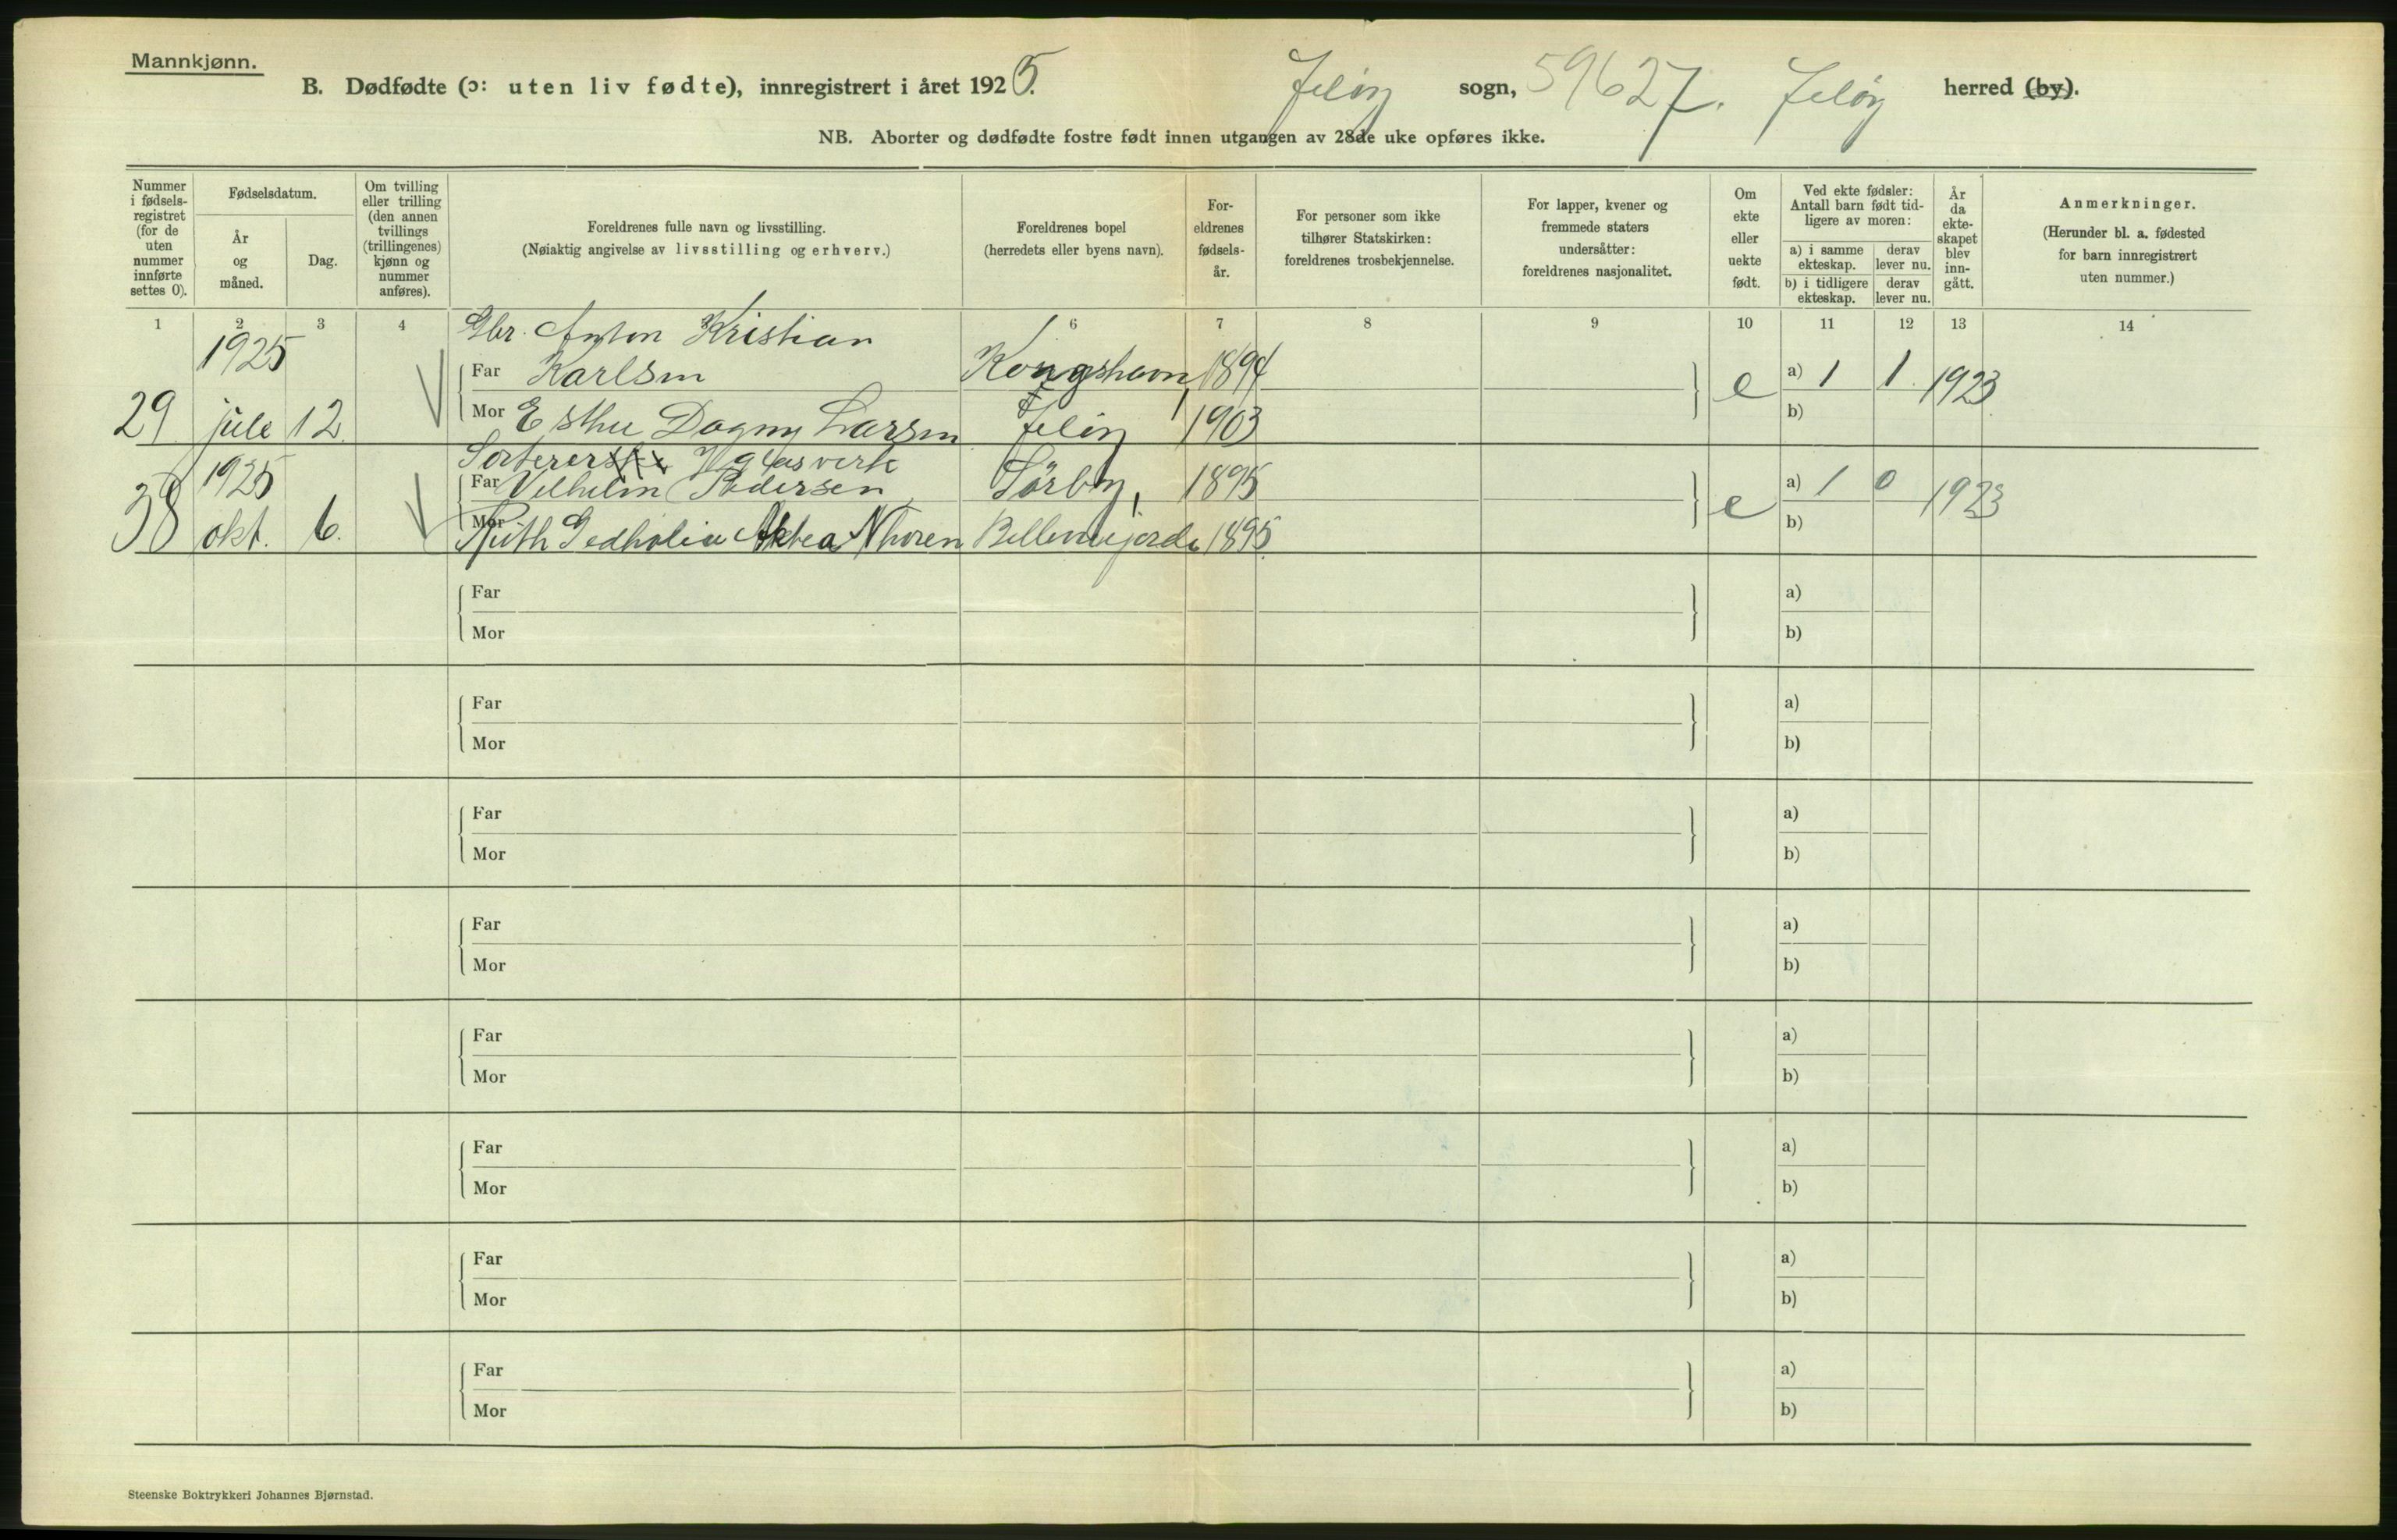 Mannkjønn.
B. Dødfødte (ɔ: uten liv fødte), innregistrert i året 1925. Jeløy sogn, 59627. Jeløy herred (by).
NB. Aborter og dødfødte fostre født innen utgangen av 28de uke opføres ikke.
Nummer i fødsels-registret (for de uten nummer innførte settes 0).
Fødselsdatum.
År og måned.
Dag.
Om tvilling eller trilling (den annen tvillings (trillingenes) kjønn og nummer anføres).
Foreldrenes fulle navn og livsstilling.
(Nøiaktig angivelse av livsstilling og erhverv.)
Foreldrenes bopel
(herredets eller byens navn).
For-eldrenes fødsels-år.
For personer som ikke tilhører Statskirken: foreldrenes trosbekjennelse.
For lapper, kvener og fremmede staters undersåtter: foreldrenes nasjonalitet.
Om ekte eller uekte født.
Ved ekte fødsler: Antall barn født tid-ligere av moren:
a) i samme ekteskap. derav lever nu.
b) i tidligere ekteskap. derav lever nu.
År da ekte-skapet blev inn-gått.
Anmerkninger.
(Herunder bl. a. fødested for barn innregistrert uten nummer.)
1 2 3 4 6 7 8 9 10 11 12 13 14
Gbr. Anton Kristian
1925 Far Karlsen Kongshavn, 1894 e a) 1 1. 1923
29 juli 12. Mor Esther Dagny Larsen Jeløy 1903 b)
Sorterer v glasverk
1925 Far Vilhelm Pedersen, Sørby, 1895 e a) 1 0 1923
38 okt. 6. Mor Ruth Aktea Thoren 1895 b)
Far a)
Mor b)
Far a)
Mor b)
Far a)
Mor b)
Far a)
Mor b)
Far a)
Mor b)
Far a)
Mor b)
Far a)
Mor b)
Far a)
Mor b)
Steenske Boktrykkeri Johannes Bjørnstad.